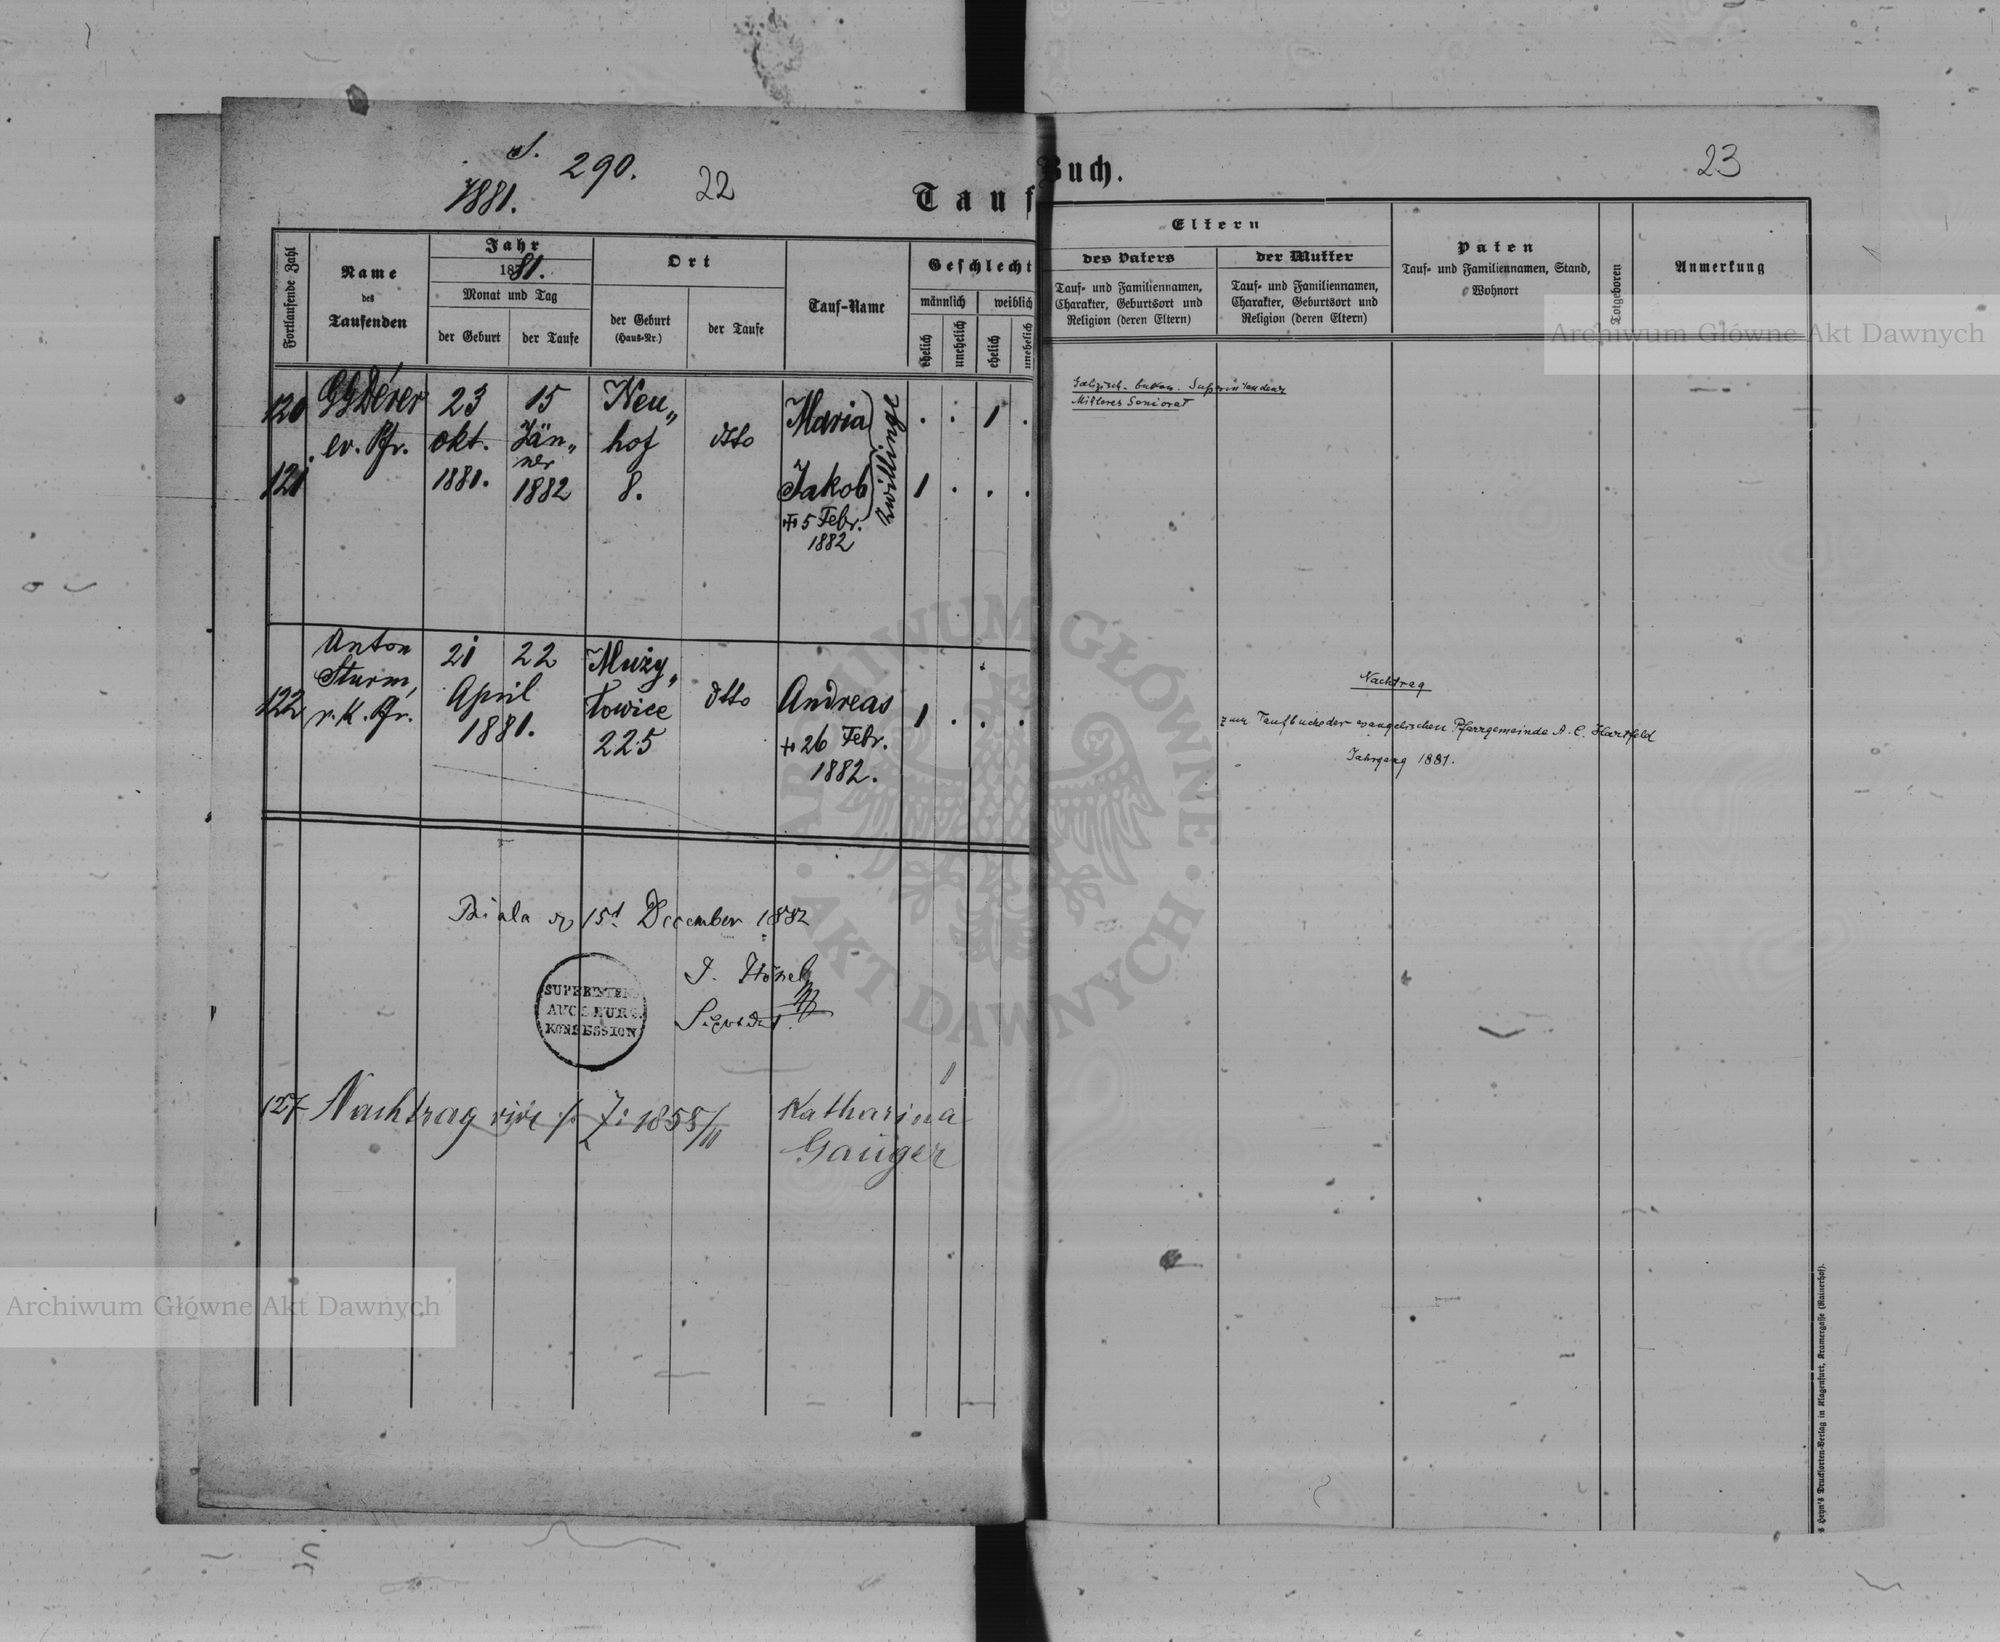 S. 290.
1881.
22
Tauf
Fortlaufende Zahl
Name
des
Taufenden
Jahr
1881.
Monat und Tag
der Geburt
der Taufe
Ort
der Geburt
(Haus-Nr.)
der Taufe
Tauf-Name
Geschlecht
männlich
weiblich
ehelich
unehelich
ehelich
unehelich
120
121
ev. Pfr.
23
okt.
1881.
15
Jän„
ner
1882
Neu„
hof
8.
dtto
Maria
Jakob
5 Febr.
1882
Zwillinge
. . 1 .
1 . . .
122
Anton
Sturm,
r. K. Pfr.
21 22
April
1881.
Muży„
łowice
225
dtto
Andreas
26 Febr.
1882.
1 . . .
Biala 15t December 1882
J. Hönel
SUPERINTEND
AUGSBURG.
KONFESSION
127 Nachtrag 1858/III
Katharina
Gauger
Buch.
23
Eltern
des Vaters
Tauf- und Familiennamen,
Charakter, Geburtsort und
Religion (deren Eltern)
der Mutter
Tauf- und Familiennamen,
Charakter, Geburtsort und
Religion (deren Eltern)
Paten
Tauf- und Familiennamen, Stand,
Wohnort
Totgeboren
Anmerkung
Galizisch-bukow. Superintendenz
Mittleres Seniorat
Nachtrag
zum Taufbuche der evangelischen Pfarrgemeinde A. C. Hartfeld
Jahrgang 1881.
Druckforten-Verlag in Klagenfurt, Kramergasse (Rainerhof).
Archiwum Główne Akt Dawnych
Archiwum Główne Akt Dawnych
ARCHIWUM GŁÓWNE · AKT DAWNYCH ·